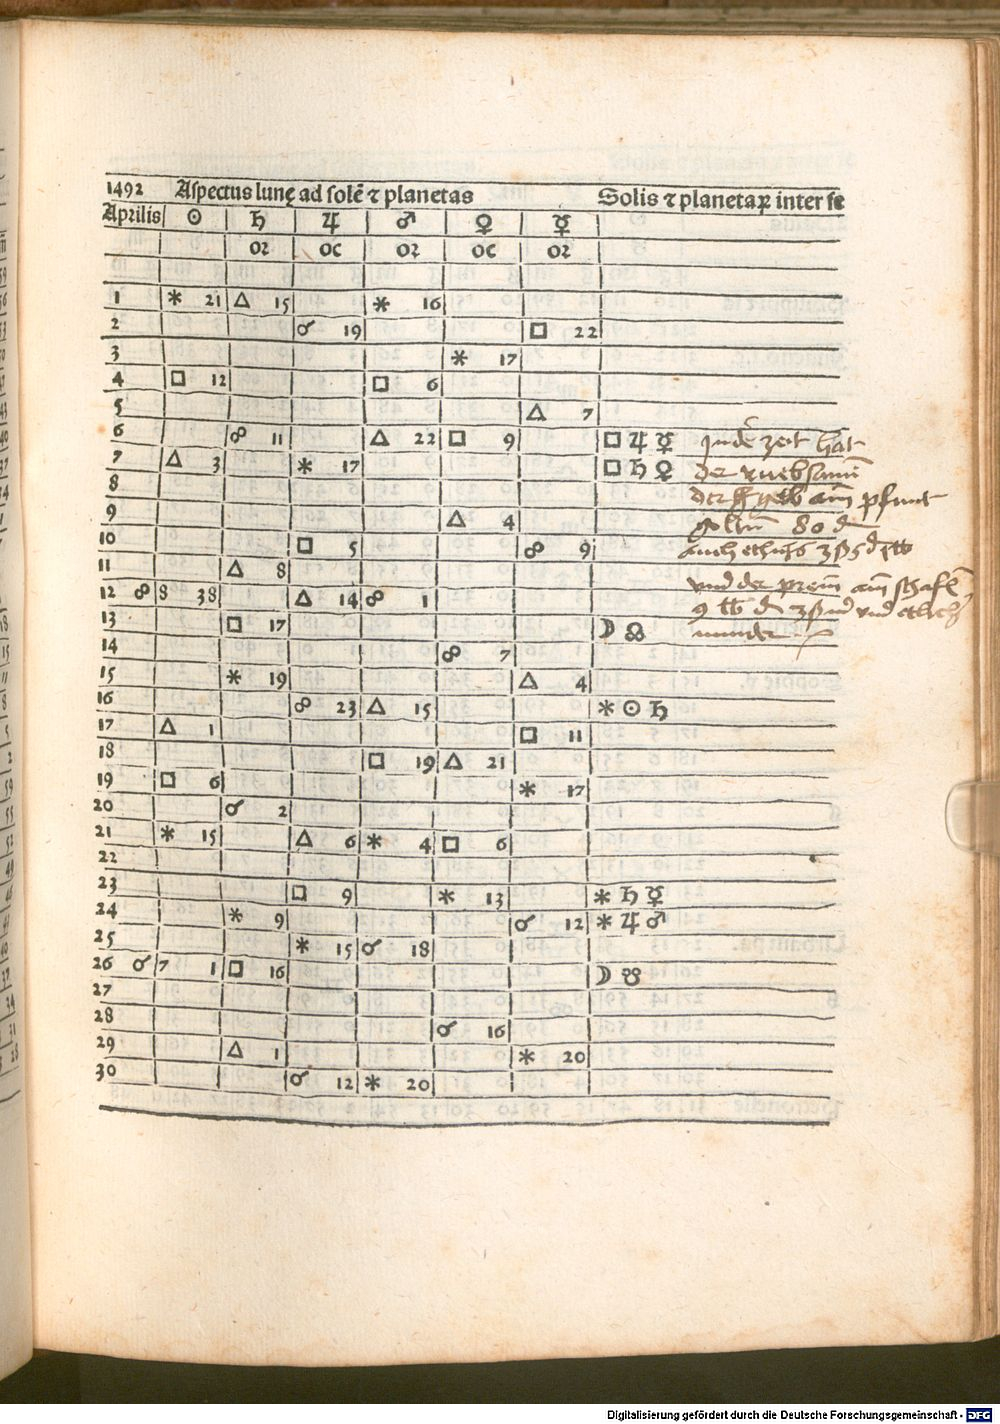 1492 Aspectus lunę ad solē ⁊ planetas Solis ⁊ planetaꝝ inter se
Aprilis ☉ ♄ ♃ ♂ ♀ ☿
oꝛ oc oꝛ oc oꝛ
1 ⚹ 21 △ 15 ⚹ 16
2 ☌ 19 □ 22
3 ⚹ 17
4 □ 12 □ 6
5 △ 7
6 ☍ 11 △ 22 □ 9 □ ♃ ☿ zeit hat
7 △ 3 ⚹ 17 □ ♄ ♀ der
8 pfund
9 △ 4 80 d
10 □ 5 ☍ 9
11 △ 8
12 ☍ 8 38 △ 14 ☍ 1 und
13 □ 17 ☽ ☊ minder
14 ☍ 7
15 ⚹ 19 △ 4
16 ☍ 23 △ 15 ⚹ ☉ ♄
17 △ 1 □ 11
18 □ 19 △ 21
19 □ 6 ⚹ 17
20 ☌ 2
21 ⚹ 15 △ 6 ⚹ 4 □ 6
22
23 □ 9 ⚹ 13 ⚹ ♄ ☿
24 ⚹ 9 ☌ 12 ⚹ ♃ ♂
25 ⚹ 15 ☌ 18
26 ☌ 7 1 □ 16 ☽ ☋
27
28 ☌ 16
29 △ 1 ⚹ 20
30 ☌ 12 ⚹ 20
Digitalisierung gefördert durch die Deutsche Forschungsgemeinschaft - DFG